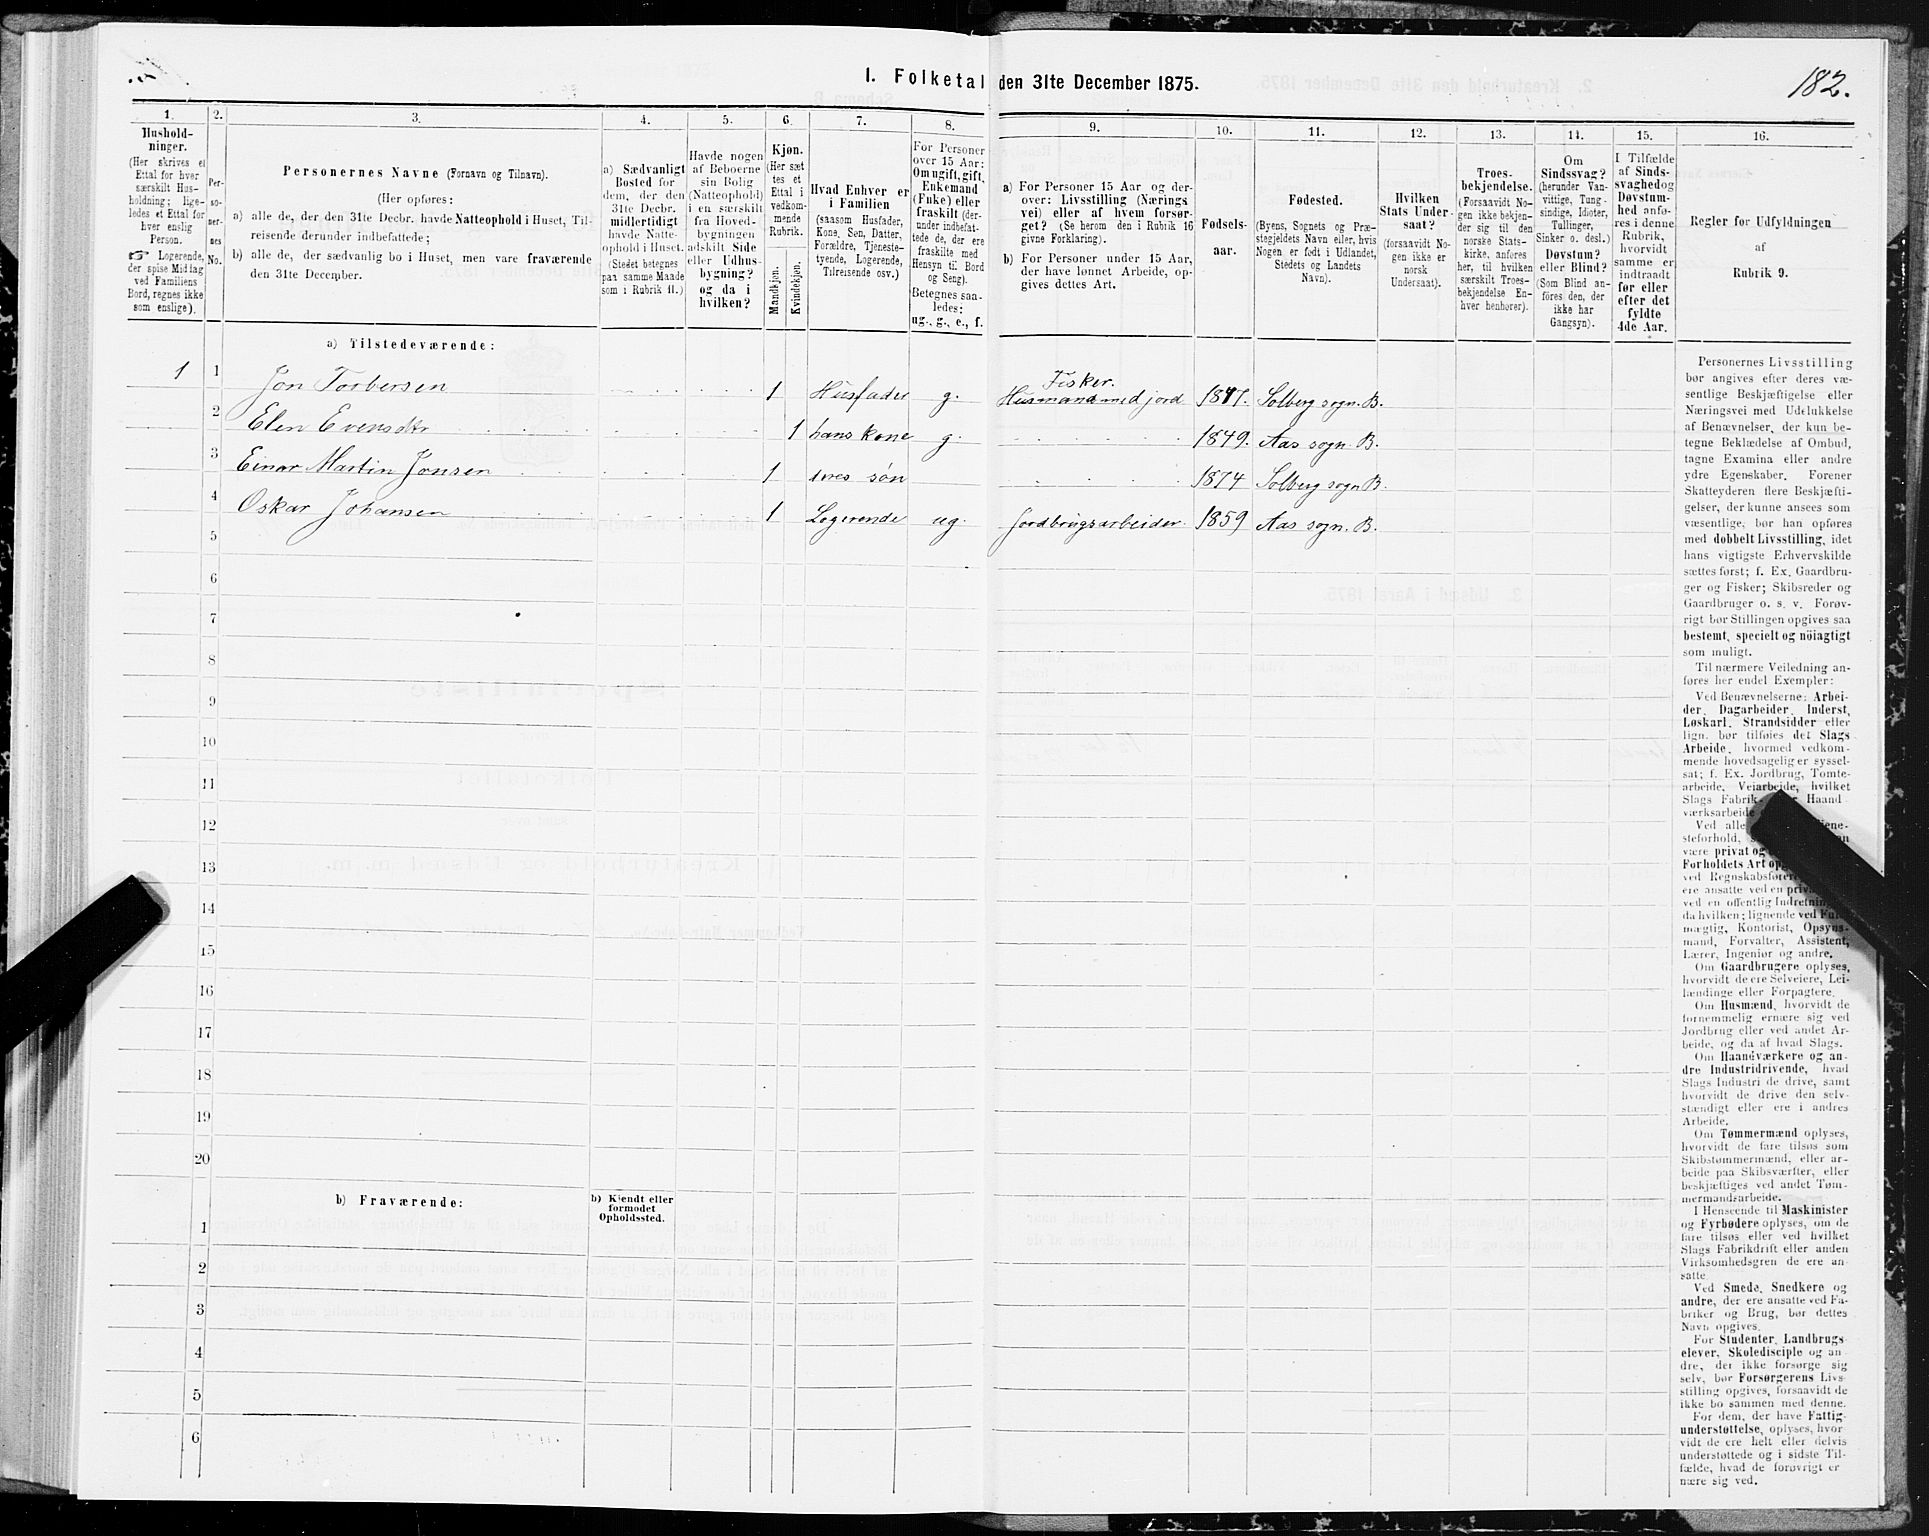 I. Folketal den 31te December 1875.
182.
1.
Hushold-
ninger.
(Her skrives et
Ettal for hver
særskilt Hus-
holdning; lige-
ledes et Ettal for
hver enslig
Person.
☞ Logerende,
der spise Middag
ved Familiens
Bord, regnes ikke
som enslige).
2.
Per-
so-
ner-
nes
No.
3.
Personernes Navne (Fornavn og Tilnavn).
(Her opføres:
a) alle de, der den 31te Decbr. havde Natteophold i Huset, Til-
reisende derunder indbefattede;
b) alle de, der sædvanlig bo i Huset, men vare fraværende
den 31te December.
4.
a) Sædvanligt
Bosted for
dem, der den
31te Decbr.
midlertidigt
havde Natte-
ophold i Huset.
(Stedet betegnes
paa samme Maade
som i Rubrik 11.)
5.
Havde nogen
af Beboerne
sin Bolig
(Natteophold)
i en særskilt
fra Hoved-
bygningen
adskilt Side
eller Udhus-
bygning?
og da i
hvilken?
6.
Kjøn.
(Her sæt
tes et
Ettal i
vedkom-
mende
Rubrik.
Mandkjøn.
Kvindekjøn.
7.
Hvad Enhver er
i Familien
(saasom Husfader,
Kone, Søn, Datter,
Forældre, Tjeneste-
tyende, Logerende,
Tilreisende osv.)
8.
For Personer
over 15 Aar:
Om ugift, gift,
Enkemand
(Enke) eller
fraskilt (der-
under indbefat-
tede de, der ere
fraskilte med
Hensyn til Bord
og Seng).
Betegnes saa-
ledes:
ug., g., e., f.
9.
a) For Personer 15 Aar og der-
over: Livsstilling (Nærings
vei) eller af hvem forsør-
get? (Se herom den i Rubrik 16
givne Forklaring).
b) For Personer under 15 Aar,
der have lønnet Arbeide, op-
gives dettes Art.
10.
Fødsels-
aar.
11.
Fødested.
(Byens, Sognets og Præ-
stegjeldets Navn eller, hvis
Nogen er født i Udlandet,
Stedets og Landets
Navn).
12.
Hvilken
Stats Under-
saat?
(forsaavidt No-
gen ikke er
norsk
Undersaat).
13.
Troes-
bekjendelse.
(Forsaavidt No-
gen ikke bekjen-
der sig til den
norske Stats-
kirke, anføres
her, til hvilken
særskilt Troes-
bekjendelse En-
hver henhører).
14.
Om
Sindssvag?
(herunder Van-
vittige, Tung-
sindige, Idioter,
Tullinger,
Sinker o. desl.)
Døvstum?
eller Blind?
(Som Blind an-
føres den, der
ikke har
Gangsyn).
15.
I Tilfælde
af Sinds-
svaghed og
Døvstum-
hed anfø-
res i denne
Rubrik,
hvorvidt
samme er
indtraadt
før eller
efter det
fyldte
4de Aar.
16.
Regler for Udfyldningen
af
Rubrik 9.
a) Tilstedeværende:
1 1 Jon Torbersen 1 Husfader g. Fisker.
Husmand med jord 1847. Solberg sogn. B.
2 Elen Evensdtr 1 hans kone g. 1849. Aas sogn. B.
3 Einar Martin Jonsen 1 eres søn 1874 Solberg sogn B.
4 Oskar Johansen 1 Logerende ug. Jordbrugsarbeider. 1859 Aas sogn. B.
5
6
7
8
9
10
11
12
13
14
15
16
17
18
19
20
b) Fraværende:
b) Kjendt eller
formodet
Opholdssted.
1
2
3
4
5
6
Personernes Livsstilling
bør angives efter deres væ-
sentlige Beskjæftigelse eller
Næringsvei med Udelukkelse
af Benævnelser, der kun be-
tegne Beklædelse af Ombud,
tagne Examina eller andre
ydre Egenskaber. Forener
Skatteyderen flere Beskjæfti-
gelser, der kunne ansees som
væsentlige, bør han opføres
med dobbelt Livsstilling, idet
hans vigtigste Erhvervskilde
sættes først; f. Ex. Gaardbru-
ger og Fisker; Skibsreder og
Gaardbruger o. s. v. Forøv-
rigt bør Stillingen opgives saa
bestemt, specielt og nöiagtigt
som muligt.
Til nærmere Veiledning an-
føres her endel Exempler:
Ved Benævnelserne: Arbei-
der, Dagarbeider, Inderst,
Løskarl, Strandsidder eller
lign. bør tilføies det Slags
Arbeide, hvormed vedkom-
mende hovedsagelig er syssel-
sat; f. Ex. Jordbrug, Tomte-
arbeide, Veiarbeide, hvilket
Slags Fabrik- Haand-
værksarbeide
Ved alle jene-
steforhold,
være privat og
Forholdets Art opg
ved Regnskabsførere
ere ansatte ved en priv
ved en offentlig Indretning
da hvilken; lignende ved Fuld-
mægtig, Kontorist, Opsyns-
mand, Forvalter, Assistent,
Lærer, Ingeniør og andre.
Om Gaardbrugere oplyses,
hvorvidt de ere Selveiere, Lei-
lændinge eller Forpagtere.
Om Husmænd, hvorvidt de
fornemmelig ernære sig ved
Jordbrug eller ved andet Ar-
beide, og da af hvad Slags.
Om Haandværkere og an-
dre Industridrivende, hvad
Slags Industri de drive, samt
hvorvidt de drive den selv-
stændigt eller ere i andres
Arbeide.
Om Tømmermænd oplyses,
hvorvidt de fare tilsøs som
Skibstømmermænd, eller ar-
beide paa Skibsværfter, eller
beskjæftiges ved andet Tøm-
mermandsarbeide.
I Henseende til Maskinister
og Fyrbødere oplyses, om de
fare tilsøs eller ved hvilket
Slags Fabrikdrift eller anden
Virksomhedsgren de ere an-
satte.
Ved Smede, Snedkere og
andre, der ere ansatte ved Fa-
briker og Brug, bør dettes
Navn opgives.
For Studenter, Landbrugs-
elever, Skoledisciple og an-
dre, der ikke forsørge sig
selv, bør Forsørgerens Livs-
stilling opgives, forsaavidt de
ikke bo sammen med denne.
For dem, der have Fattig-
understøttelse, oplyses, hvor-
vidt de ere helt eller delvis
understøttede og i sidste Til-
fælde, hvad de forøvrigt er
nære sig ved.